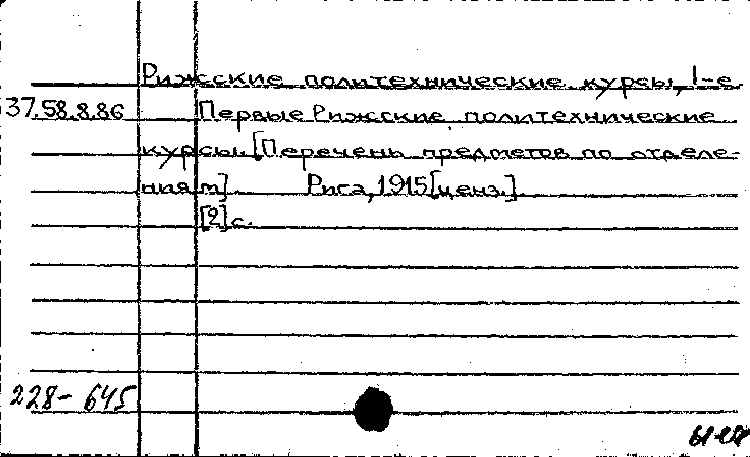 Рижские политехнические курсы, 1-е
37.58.8.86
Первые Рижские политехнические
курсы. [Перечень предметов по отделе-
ниям]. Рига, 1915 [ценз.].
[2] с.
228-645